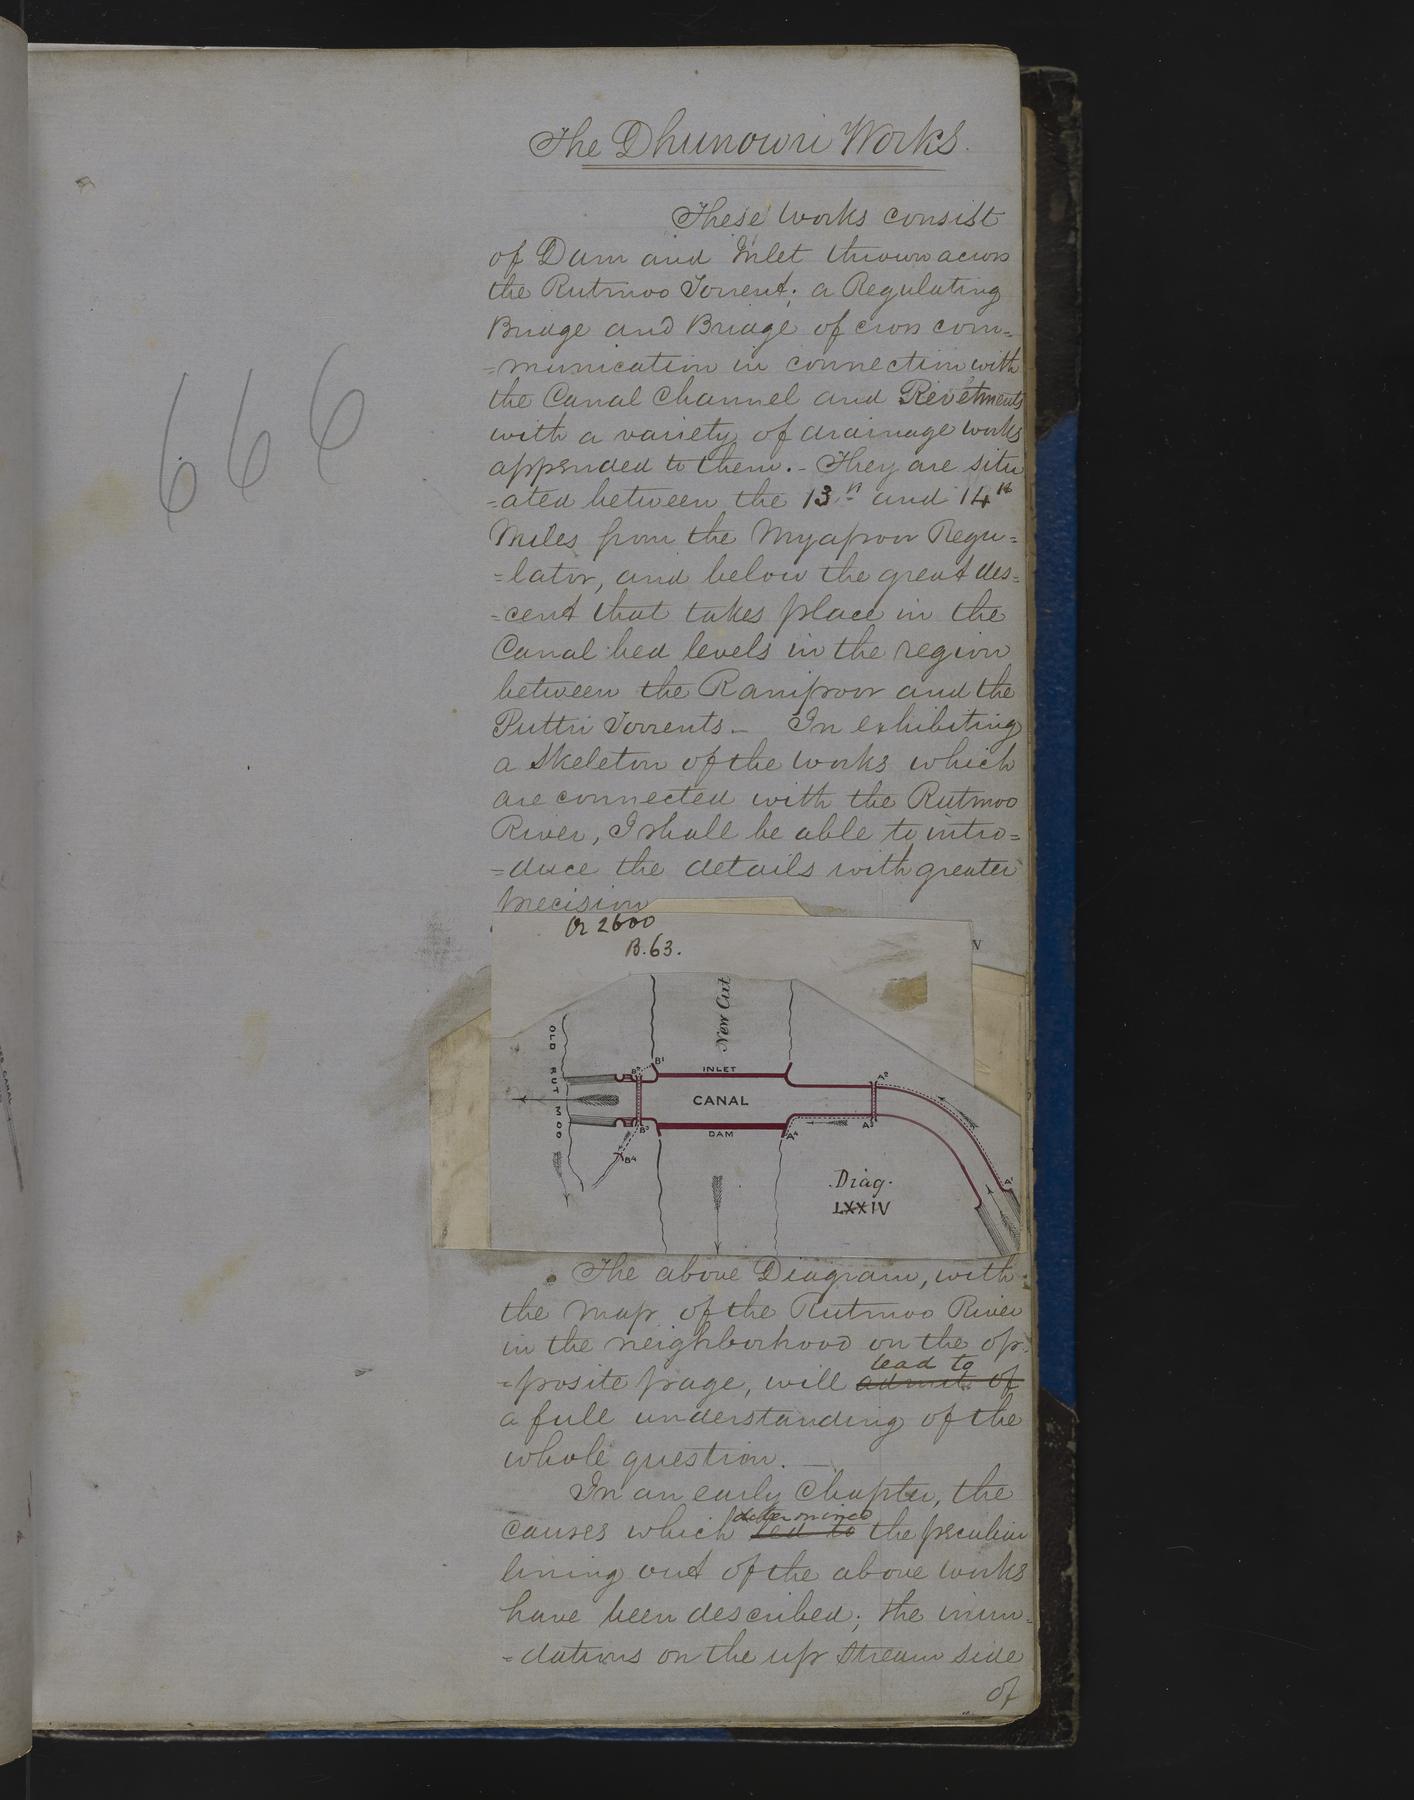 The Dhunowri Works.
666
These works consist
of Dam and Inlet thrown across
the Rutmoo Torrent; a Regulating
Bridge and Bridge of cross com=
=munication in connection with
the Canal Channel and Revetments
with a variety of drainage works
appended to them. - They are situ
-ated between the 13th and 14th
Miles from the Myapoor Regu=
=lator, and below the great des=
=cent that takes place in the
Canal bed levels in the region
between the Ranipoor and the
Puttri Torrents - In exhibiting
a skeleton of the works which
are connected with the Rutmoo
River, I shall be able to intro=
=duce the details with greater
precision
Or 2600
B. 63.
V
New Cut
OLD RUTMOO
B1
B2
INLET
A2
CANAL
B3
DAM
A4
A3
B4
A1
Diag.
LXXIV
The above Diagram, with
the Map of the Rutmoo River
in the neighborhood on the op
lead to
=posite page, will admit of
a full understanding of the
whole question. —
In an early Chapter, the
determined
causes which led to the peculiar
lining out of the above works
have been described; the inun-
=dations on the up stream side
of